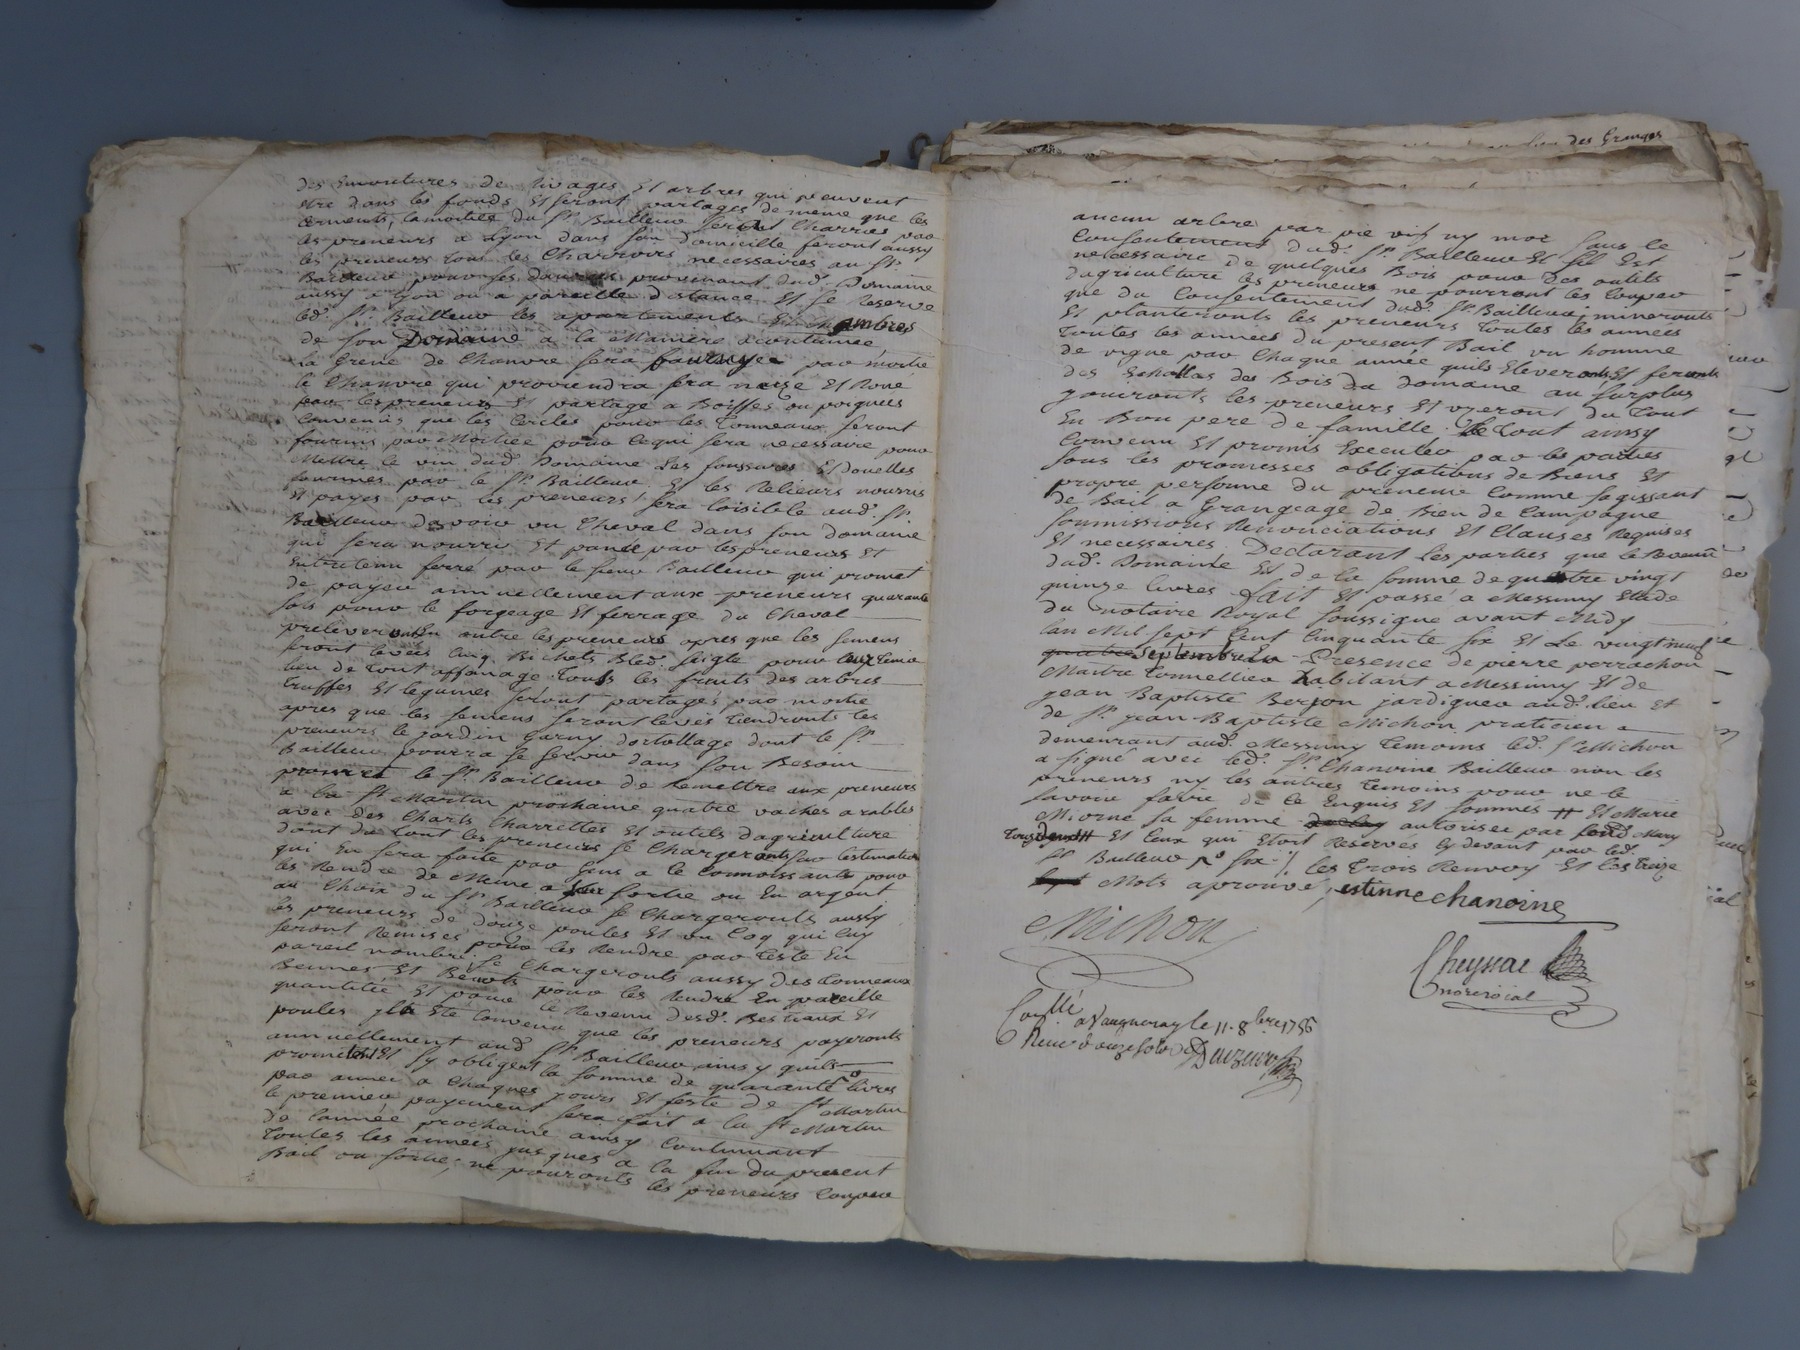 des Emontures de sivages Et arbres qui peuvent
etre dans les fonds Et seront partages de meme que les
serments, la moitié du Sr. Bailleur seront Charries par
les preneurs a Lyon dans son domicille feront aussy
les preneurs tout les Charrois necessaires au Sr.
Bailleur pour ses danrées provenant dud. Domaine
aussy a Lyon ou a pareille distance Et se Reserve
led. Sr. Bailleur les apartements Et chambres
de son Domaine a la Maniere acoutumée
la grene de Chanvre sera fournye par moitié
le Chanvre qui proviendra sera neize Et Roué
par les preneurs Et partagé a Boisses ou poignees
Convenus que les Cercles pour les Tonneaux seront
fournis par Moitiée pour ce qui sera necessaire pour
Mettre le vin dud. Domaine Les foussures Et douelles
fournies par le Sr. Bailleur Et les Relieurs nourris
Et payes par les preneurs, sera loisible aud. Sr.
Bailleur davoir un Cheval dans son domaine
qui sera nourri Et pansé par les preneurs Et
Entretenu ferré par le sieur Bailleur qui promet
de payer annuellement aux preneurs quarante
sols pour le forgeage Et ferrage du Cheval
preleveront En outre les preneurs apres que les semens
seront levés Cinq Bichets Bled seigle pour leur tenir
lieu de tout affanage Tous les fruits des arbres
truffes Et legumes seront partagés par moitié
apres que les semens seront levés Tiendront les
preneurs le jardin garny dortollage dont le Sr.
Bailleur pourra se servir dans son Besoin
promet le Sr. Bailleur de Remettre aux preneurs
a la St Martin prochaine quatre vaches arables
avec des Chars Charrettes Et outils dagriculture
dont du tout les preneurs se Chargeront sur lestimation
qui En sera faite par gens a ce Connoissants pour
les Rendre de Meme a leur sortie ou En argent
au Choix du Sr. Bailleur se Chargeronts aussy
les preneurs de douze poules Et un Coq qui luy
seront Remises pour les Rendre par teste En
pareil nombre, se Chargeronts aussy des tonneaux
Bennes Et Benots pour les Rendre En pareille
quantitée Et pour le Revenu desd. Bestiaux Et
poules il a Eté Convenu que les preneurs payeronts
annuellement aud. Sr. Bailleur ainsy quils
promettent Et sy obligent la somme de quarante livres
par année a Chaques jours Et feste de St Martin
le premier payement sera fait a la St Martin
de lannée prochaine ainsy Continuant
Toutes les années jusques a la fin du present
Bail ou sortie, ne pouronts les preneurs Couper
lieu des Granges
aucun arbre par pie vif ny mor sans le
Consentement dud. Sr. Bailleur Et sil Est
necessaire de quelques Bois pour des outils
dagriculture les preneurs ne pourront les Couper
que du Consentement dud. Sr. Bailleur, mineronts
Et planteronts les preneurs Toutes les années
Toutes les années du present Bail un homme
de vigne par Chaque année quils Eleveronts Et feronts
des Echallas des Bois du domaine au surplus
jouironts les preneurs Et useront du Tout
En Bon pere de famille. Le tout ainsy
Convenu Et promis Executer par les parties
sous les promesses obligations de Biens Et
propre personne du preneur Comme sagissant
de Bail a Grangeage de Bien de Campagne
soumissions Renonciations Et Clauses Requises
Et necessaires. Declarant les parties que le Revenu
dud. Domaine Est de la somme de quatre vingt
quinze livres fait Et passé a Messimy Etude
du notaire Royal soussigné avant Midy
lan Mil sept Cent Cinquante six Et Le vingt neuf
quatre septembre En Presence de pierre perrachon
Maitre tonnellier habitant a Messimy Et de
jean Baptiste Berjon jardigner aud. lieu Et
de Sr. jean Baptiste Michon praticien
demeurant aud. Messimy Temoins led. Sr Michon
a signé avec led. Sr. Chanoine Bailleur non les
preneurs ny les autres Temoins pour ne le
savoir faire de ce Enquis Et sommés # Et Marie
Miorne sa femme autorisée par led. Mary
Tous deux # Et Ceux qui Etoit Reservés Cy devant par led.
Sr. Bailleur po. six // les Trois Renvoy Et Les Treze
sept Mots aprouvé, estienne chanoine
Michon
Cheyssac
no. roial
Conllé a Vaugneray le 11. 8bre 1756
Reçu douze sols Dauzeur